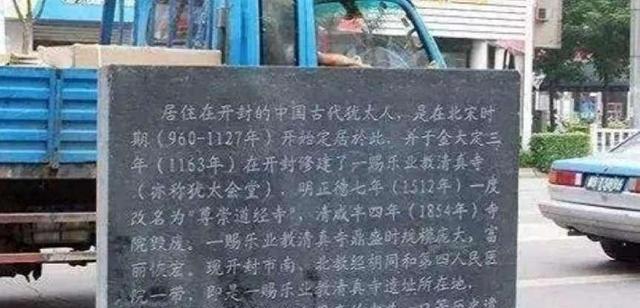 居住在开封的中国古代犹太人，是在北宋时
期（960-1127年）开始定居於此，并于金大定三
年（1163年）在开封修建了一赐乐业教清真寺
（亦称犹太会堂）。明正德七年（1512年）一度
改名为“尊崇道经寺”，清咸丰四年（1854年）寺
院毁废。一赐乐业教清真寺鼎盛时规模庞大，富
丽恢宏。现开封市南、北教经胡同和第四人民医
院一带，即是一赐乐业教清真寺遗址所在地，